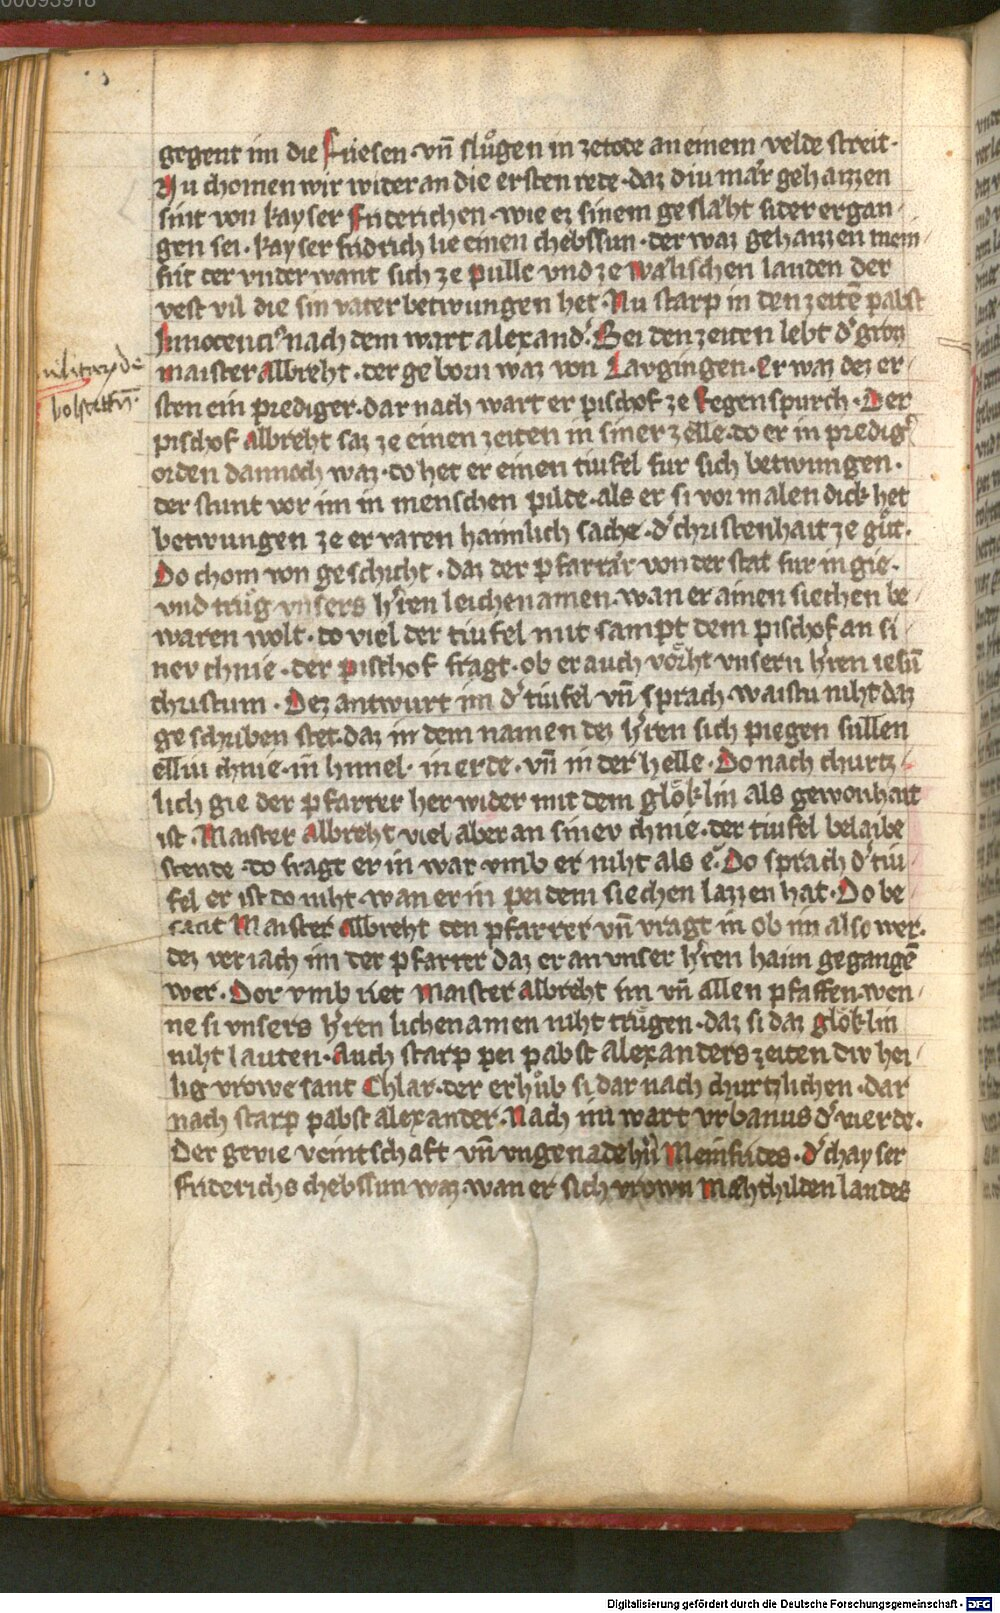 00093918
gegent im die Friesen · vn̄ slůgen in ze tode an einem velde streit ·
Nu chomen wir wider an die ersten rede · daz diu mær gehaizzen
sint von kayser Friderichen · wie ez sinem geslaͤht sider ergan /
gen sei · kayser fridrich lie einen chebssun · der waz gehaizzen mein /
frit der vnderwant sich ze pulle vnd ze walischen landen der
vest vil die sin vater betwungen het · Nu starp in den zeitē pabst
Innocenciꝰ nach dem wart alexandˀ · Bei den zeiten lebt dˀ groz
maister Albreht · der geborn waz von Laugingen · Er waz dez er /
militaris de
bolstettn̄
sten ein prediger · dar nach wart er pischof ze Regenspurch · Der
pischof Albreht saz ze einen zeiten in siner zelle · do er in predigˀ
orden dannoch waz · do het er einen tiufel fur sich betwungen ·
der stunt vor im in menschen pilde · als er si vormalen dick het
betwungen ze ervaren haimlich sache · dˀ christenhait ze gůt ·
Do chom von geschicht · daz der pfarrær von der stat fur in gie ·
vnd trůg vnsers hˀren leichenamen · wan er ainen siechen be /
waren wolt · do viel der tiufel mit sampt dem pischof an si /
nev chnie · der pischof fragt · ob er auch voͤrht vnsern hˀren iesū
christum · Dez antwurt im dˀ tiufel vn̄ sprach · waistu niht daz
geschriben stet · daz in dem namen dez hˀren sich piegen sullen
elliu chnie · in himel · in erde · vn̄ in der helle · Do nach churtz /
lich gie der pfarrer her wider mit dem gloͤklin als gewonhait
ist · Maister Albreht viel aber an sinev chnie · der tiufel belaibe
stende · do fragt er in war vmb er niht als e · Do sprach dˀ tiu
fel er ist do niht · wan er in pei dem siechen lazzen hat · Do be /
sant Maister Albreht den pfarrer vn̄ vragt in ob im also wer ·
dez veriach im der pfarrer daz er an vnser hˀren haim gegangē
wer · Dor vmb riet maister Albreht im vn̄ allen pfaffen · wen /
ne si vnsers hˀren lichenamen niht truͤgen · daz si daz gloͤklin
niht lauten · Auch starp pei pabst alexanders zeiten div hei /
lig vrowe sant Chlar · der erhůb si dar nach churtzlichen · dar
nach starp pabst alexander · Nach im wart vrbanus dˀ vierde ·
Der gevie veintschaft vn̄ vngenade hˀn Meinfrides · dˀ chayser
Friderichs chebssun waz · wan er sich vrown Mæhthilden landes
Digitalisierung gefördert durch die Deutsche Forschungsgemeinschaft - DFG